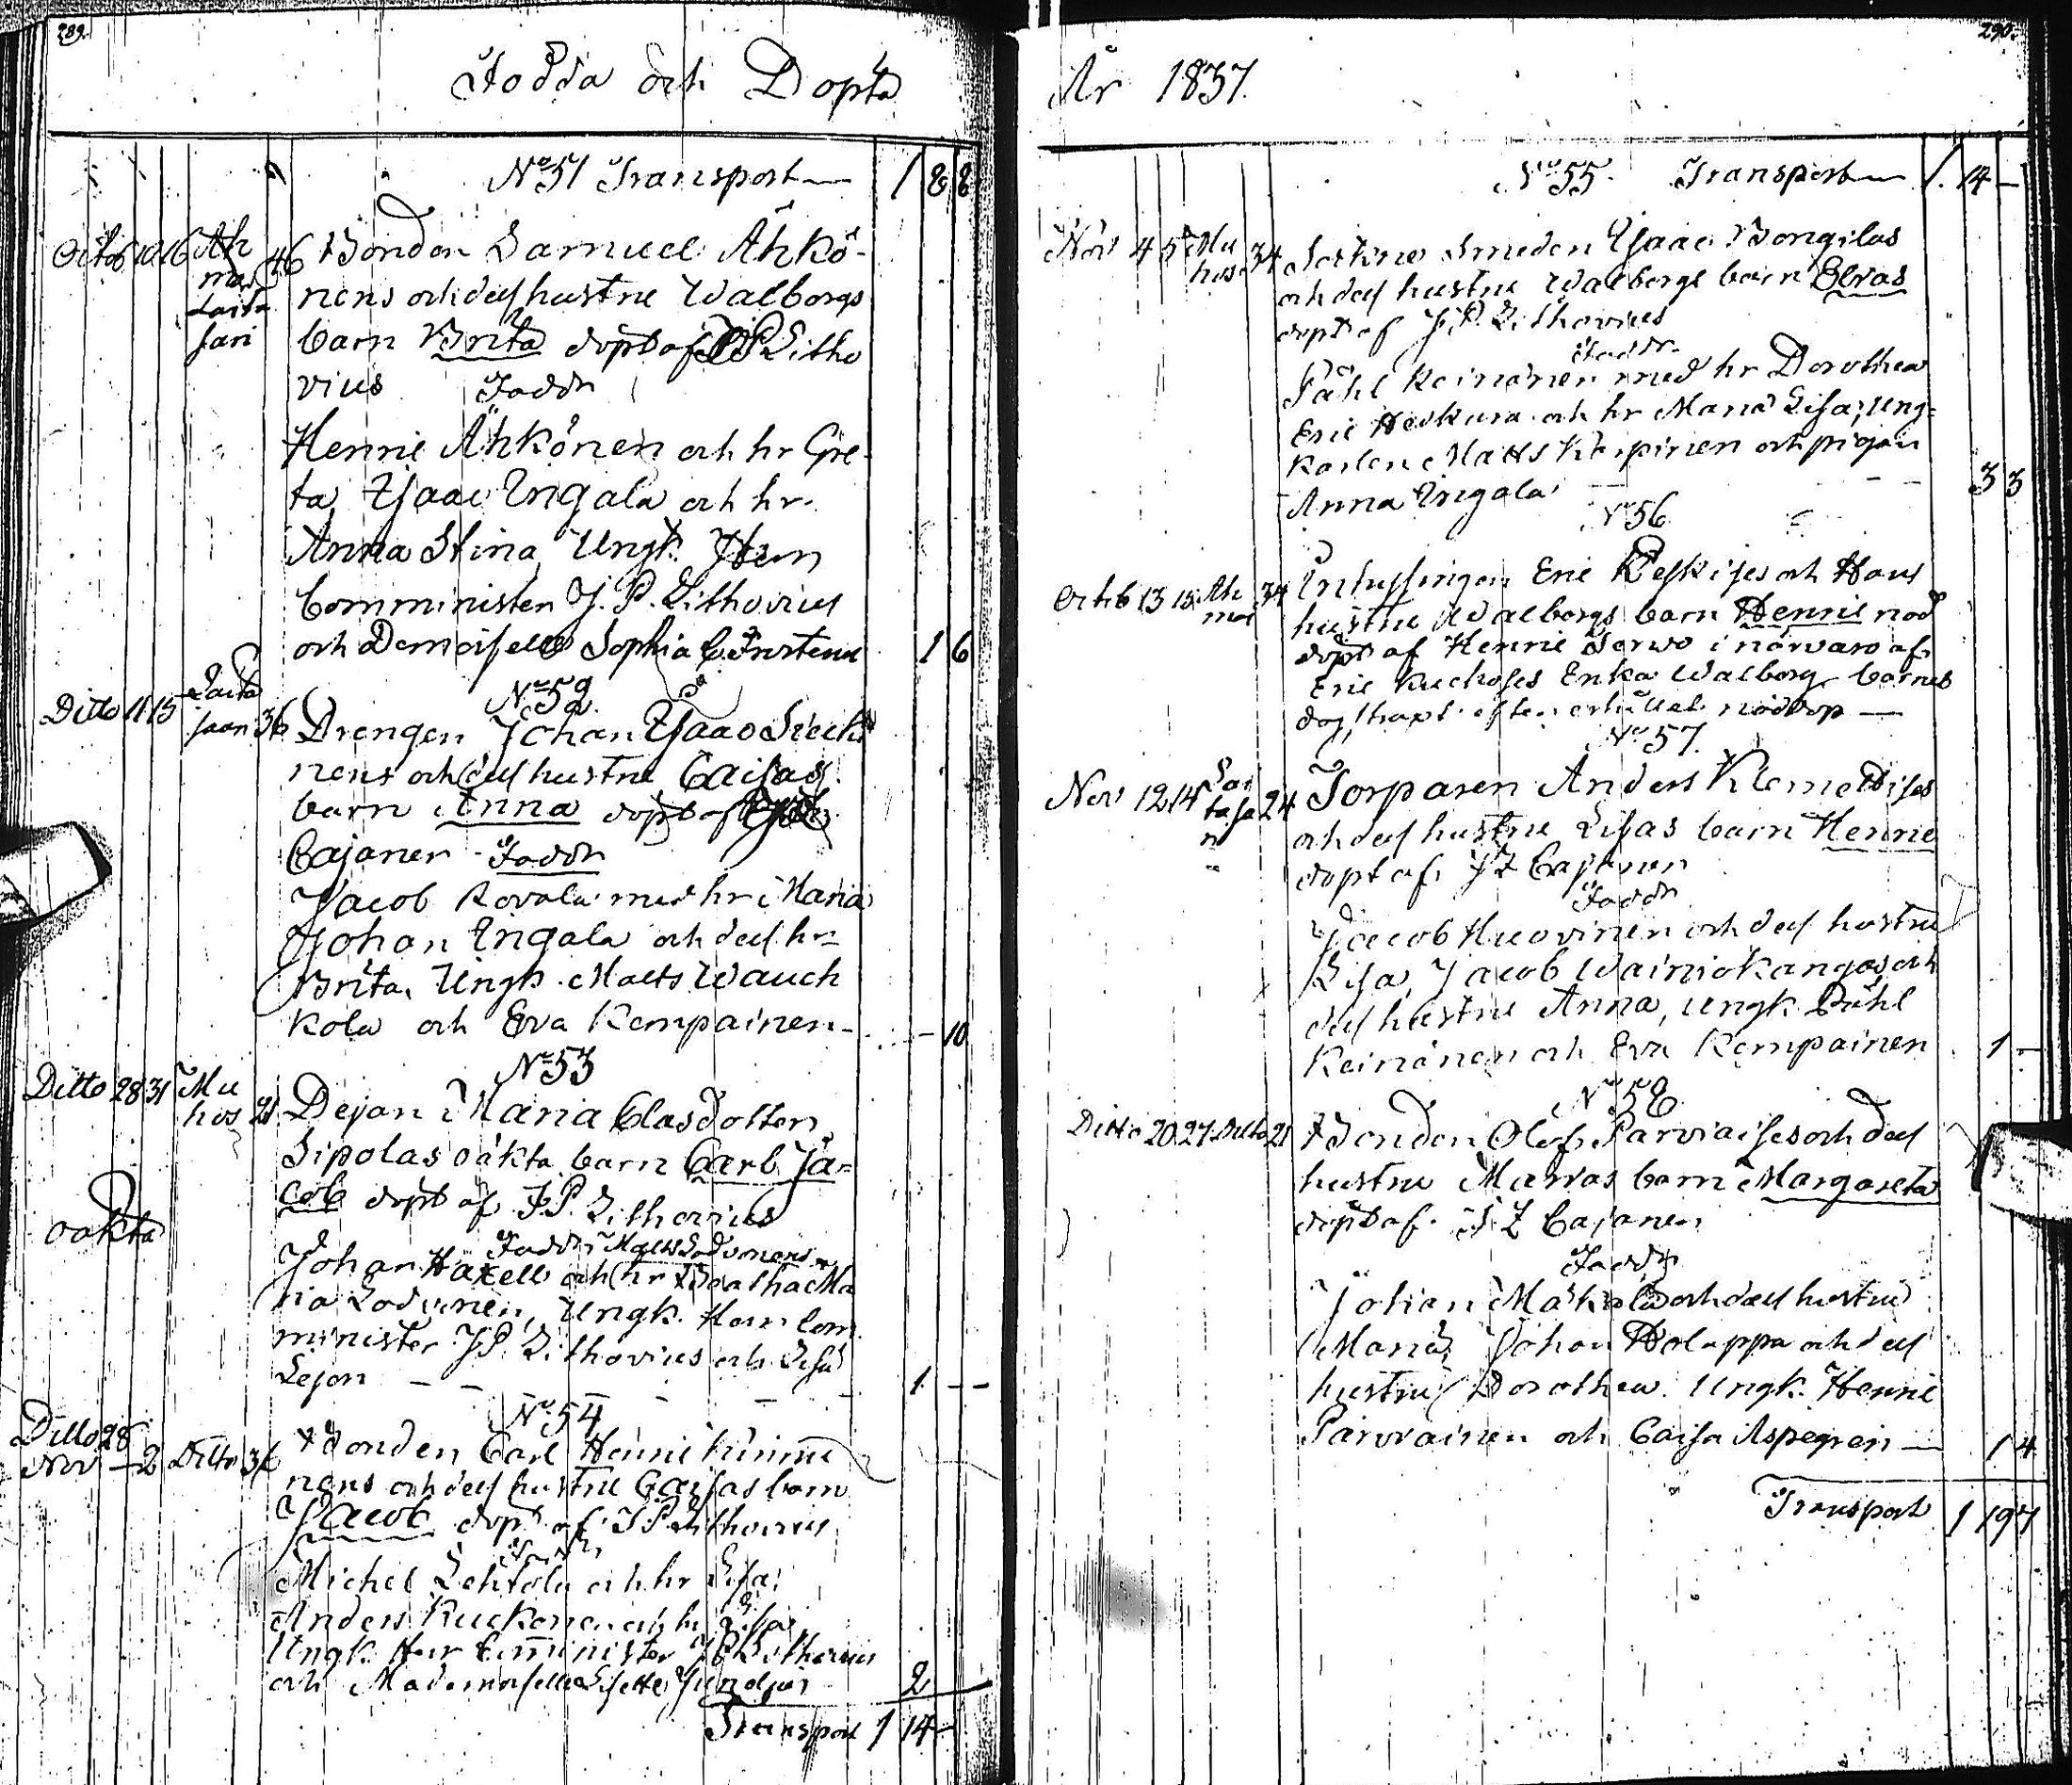 289.
Födda och Döpta
No 51 Transport — 1 8 8
Octob 10 16 Ah
mas
Laita
sari
46 Bonden Samuel Ähkö-
nens och dess hustru Walborgs
barn Brita döpt af J P Litho
vius Faddr
Henric Ähkönen och hr Gre-
ta, Isaac Ingala och hr
Anna Stina, Ungk. Herr
Comministern J. P. Lithovius
och Demoiselle Sophia C. 1 6
No 52
Ditto 11 15 Laita
saari 36 Drengen Johan Isaac
nens och dess hustru Caisas
barn Anna döpt af
Cajaner Faddr
Jacob Kovala med hr Maria
Johan Ingala och dess hr
Brita, Ungk. Matts Wauch
kola och Eva Kempainen — 10
No 53
Ditto 28 31 Mu
hos 21 Pejan Maria Clasdotter
Sipolas oäkta barn Carl Ja-
cob döpt af J. P. Lithovius
oäkta
Faddr Matts Lodvinens
Johan Haxell och hr Beatha Ma
ria Lodvinen, Ungk. Herr Com
minister J. P. Lithovius och Lisa
Lejon — — 1 — —
No 54
Ditto 28
Nov — 2 Ditto 36 Bonden Carl Henric Kinnu
nens och dess hustru Caisas barn
Jacob döpt af J P Lithovius
Faddr
Michel Lehtola och hr Lisa
Anders Kuckonen och hr Lisa
Ungk. Herr Comminister J P Lithovius
och Mademoiselle Lisette 2
Transport 1 14 —
290.
År 1837.
No 55 Transport — 1. 14 —
Nov 4 5 Mu
hos 34 Sockne Smeden Isaac Bongilas
och dess hustru Walborgs barn Elias
döpt af J. P. Lithovius
Faddr
Påhl Keinänen med hr Dorothea
Eric Heikura och hr Maria Lisa, Ung-
karlen Matts Karpinen och pigan
Anna Ingala — — 3 3
No 56
Octob 13 15 Ah
mas 34 Inhysingen Eric Keskises och Hans
hustru Walborgs barn Henric nöd
döpt af Henric Serwo i närvaro af
Eric Enka Walborg barnet
dog strax efter erhållit nöddop —
No 57.
Nov 12 14 Lai
tasa
ri 24 Torparen Anders Klemettises
och dess hustru Lisas barn Henric
döpt af J Z Cajaner
Faddr
Jacob Huovinen och dess hustru
Lisa, Jacob Wainiokangas och
dess hustru Anna, Ungk. Påhl
Keinänen och Eva Kempainen . 1 —
No 58
Ditto 20 27 Ditto 21 Bonden Olof Parviaises och dess
hustru Marias barn Margareta
döpt af J. Z Cajanen
Faddr
Johan Mäkela och dess hustru
Maria, Johan Holappa och dess
hustru Dorothea. Ungk. Henric
Parviainen och Caisa Aspegren — 1 4
Transport 1 19 7